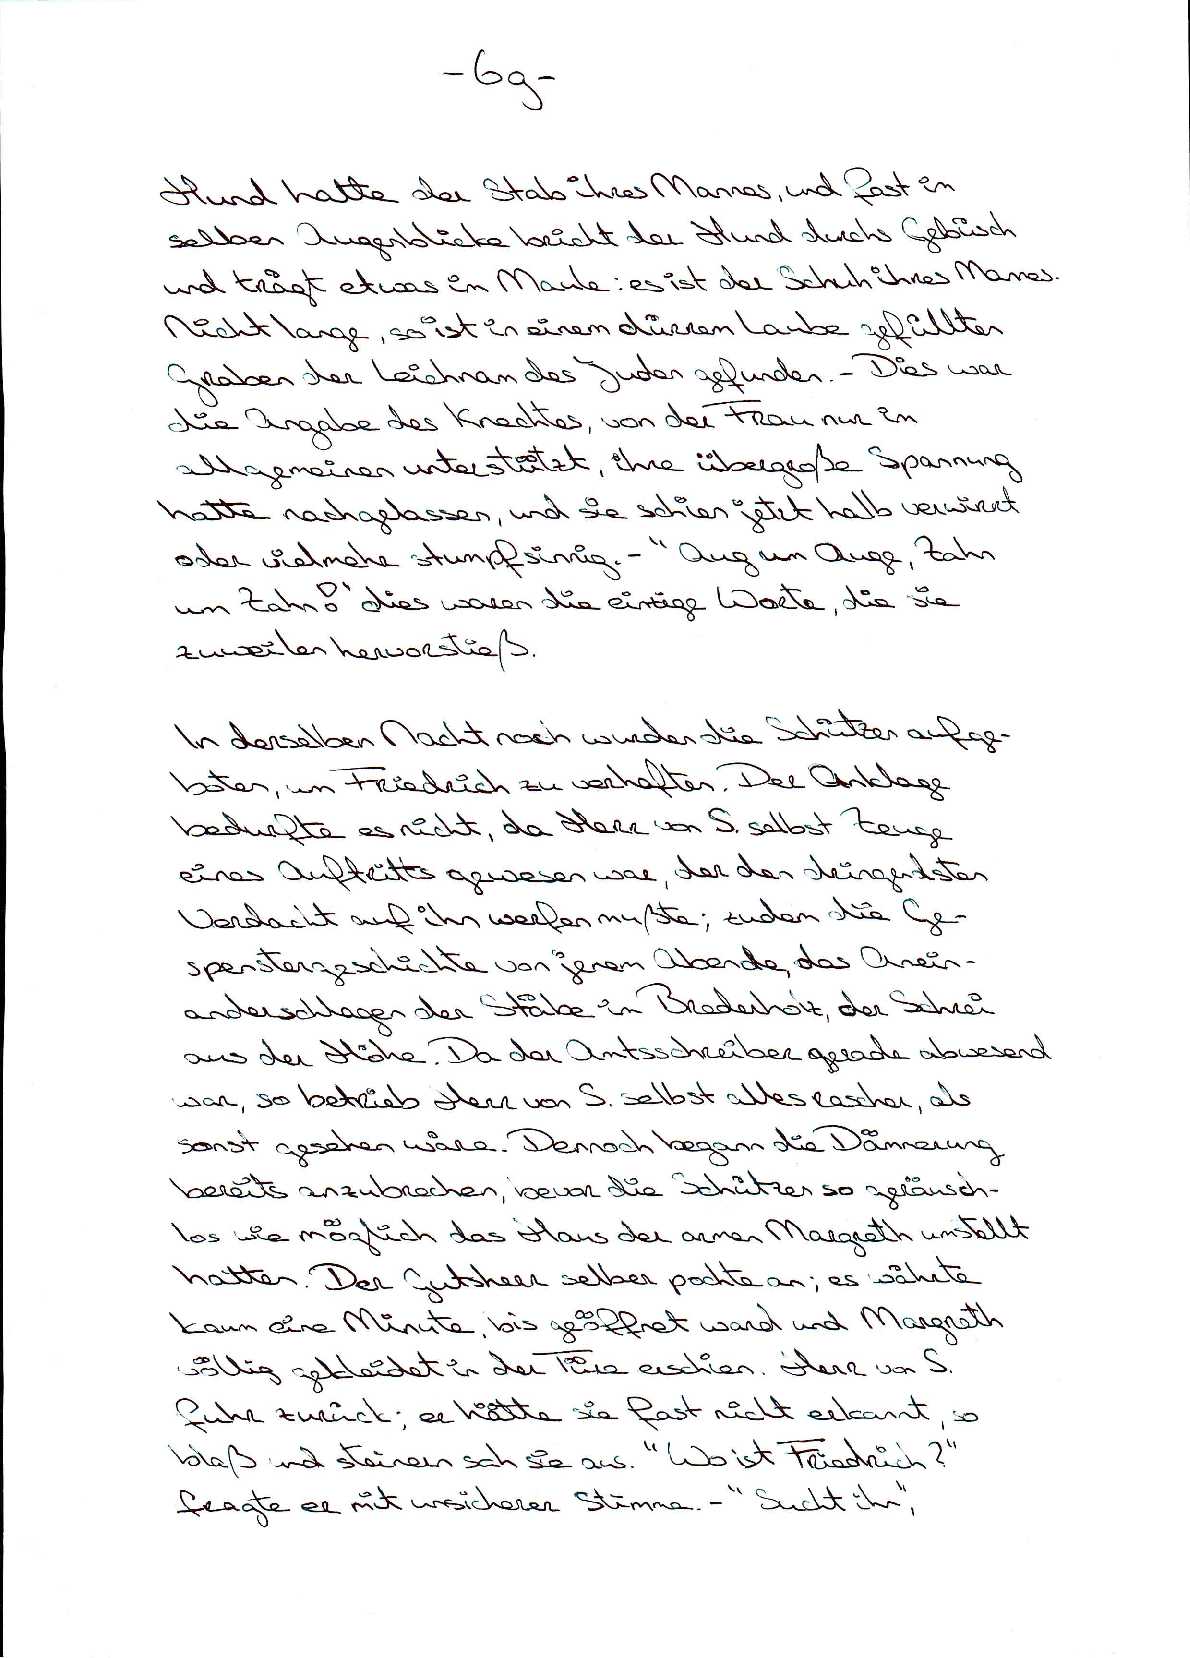 -69-
Hund hatte der Stab ihres Mannes, und fast im
selben Augenblicke bricht der Hund durchs Gebüsch
und trägt etwas im Maule: es ist der Schuh ihres Mannes.
Nicht lange, so ist in einem dürren Laube gefüllten
Graben der Leichnam des Juden gefunden. - Dies war
die Angabe des Knechtes, von der Frau nur im
allgemeinen unterstützt, ihre übergroße Spannung
hatte nachgelassen, und sie schien jetzt halb verwirrt
oder vielmehr stumpfsinnig. - "Aug um Auge, Zahn
um Zahn!" dies waren die einzige Worte, die sie
zuweilen hervorstieß.
In derselben Nacht noch wurden die Schützen aufge-
boten, um Friedrich zu verhaften. Der Anklage
bedurfte es nicht, da Herr von S. selbst Zeuge
eines Auftritts gewesen war, der den dringendsten
Verdacht auf ihn werfen mußte; zudem die Ge-
spenstergeschichte von jenem Abende, das Anein-
anderschlagen der Stäbe im Brederholz, der Schrei
aus der Höhe. Da der Amtsschreiber gerade abwesend
war, so betrieb Herr von S. selbst alles rascher, als
sonst gesehen wäre. Dennoch begann die Dämmerung
bereits anzubrechen, bevor die Schützen so geräusch-
los wie möglich das Haus der armen Margreth umstellt
hatten. Der Gutsherr selber pochte an; es währte
kaum eine Minute, bis geöffnet ward und Margreth
völlig gekleidet in der Türe erschien. Herr von S.
fuhr zurück; er hätte sie fast nicht erkannt, so
blaß und steinern sah sie aus. "Wo ist Friedrich?"
fragte er mit unsicherer Stimme. - "Sucht ihn",